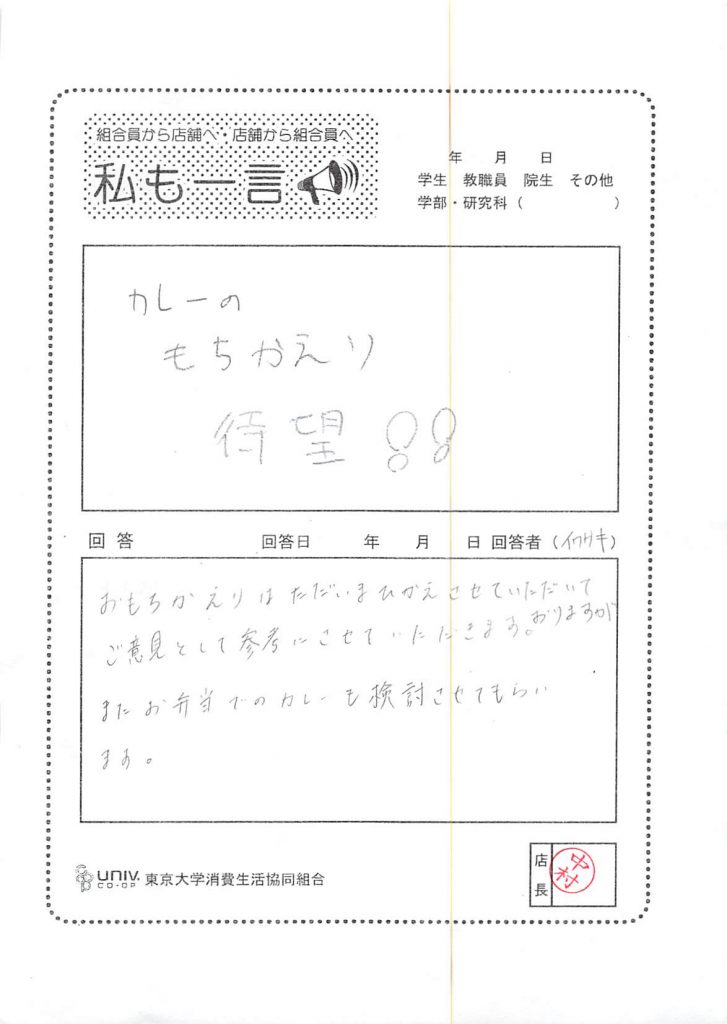 組合員から店舗へ・店舗から組合員へ
私も一言
年 月 日
学生 教職員 院生 その他
学部・研究科（ ）
カレーの
もちかえり
待望！！
回答 回答日 年 月 日 回答者（イワサキ）
おもちかえりはただいまひかえさせていただいて
おりますが
ご意見として参考にさせていただきます。
またお弁当でのカレーも検討させてもらい
ます。
UNIV. CO-OP 東京大学消費生活協同組合
店長
中村